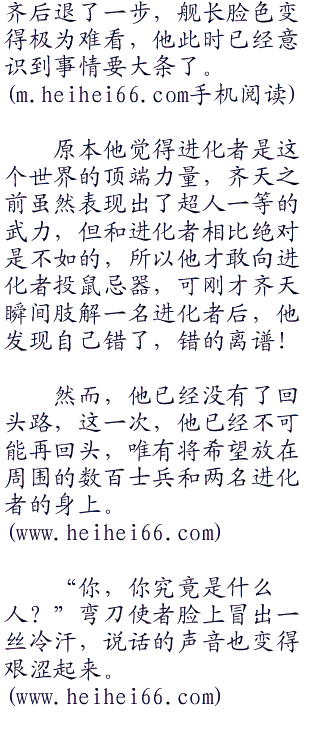 齐后退了一步，舰长脸色变
得极为难看，他此时已经意
识到事情要大条了。
(m.heihei66.com手机阅读)
原本他觉得进化者是这
个世界的顶端力量，齐天之
前虽然表现出了超人一等的
武力，但和进化者相比绝对
是不如的，所以他才敢向进
化者投鼠忌器，可刚才齐天
瞬间肢解一名进化者后，他
发现自己错了，错的离谱！
然而，他已经没有了回
头路，这一次，他已经不可
能再回头，唯有将希望放在
周围的数百士兵和两名进化
者的身上。
(www.heihei66.com)
“你，你究竟是什么
人？”弯刀使者脸上冒出一
丝冷汗，说话的声音也变得
艰涩起来。
(www.heihei66.com)